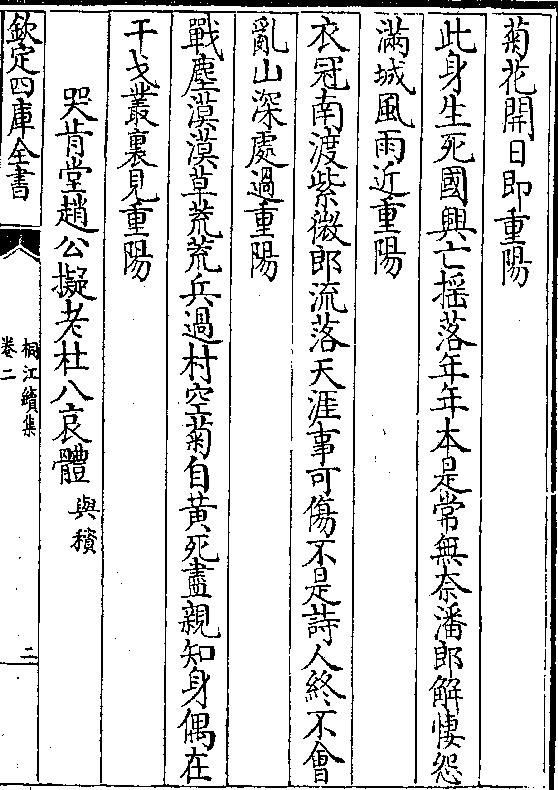 菊花開日即重陽
此身生死國興亡揺落年年本是常無奈潘郎解悽怨
滿城風雨近重陽
衣冠南渡紫微郎流落天涯事可傷不是詩人終不㑹
亂山深處過重陽
戰塵漠漠草荒荒兵過村空菊自黄死盡親知身偶在
干戈叢裏見重陽
哭肯堂趙公擬老杜八哀體與𥡜
欽定四庫全書
桐江續集
卷二
二